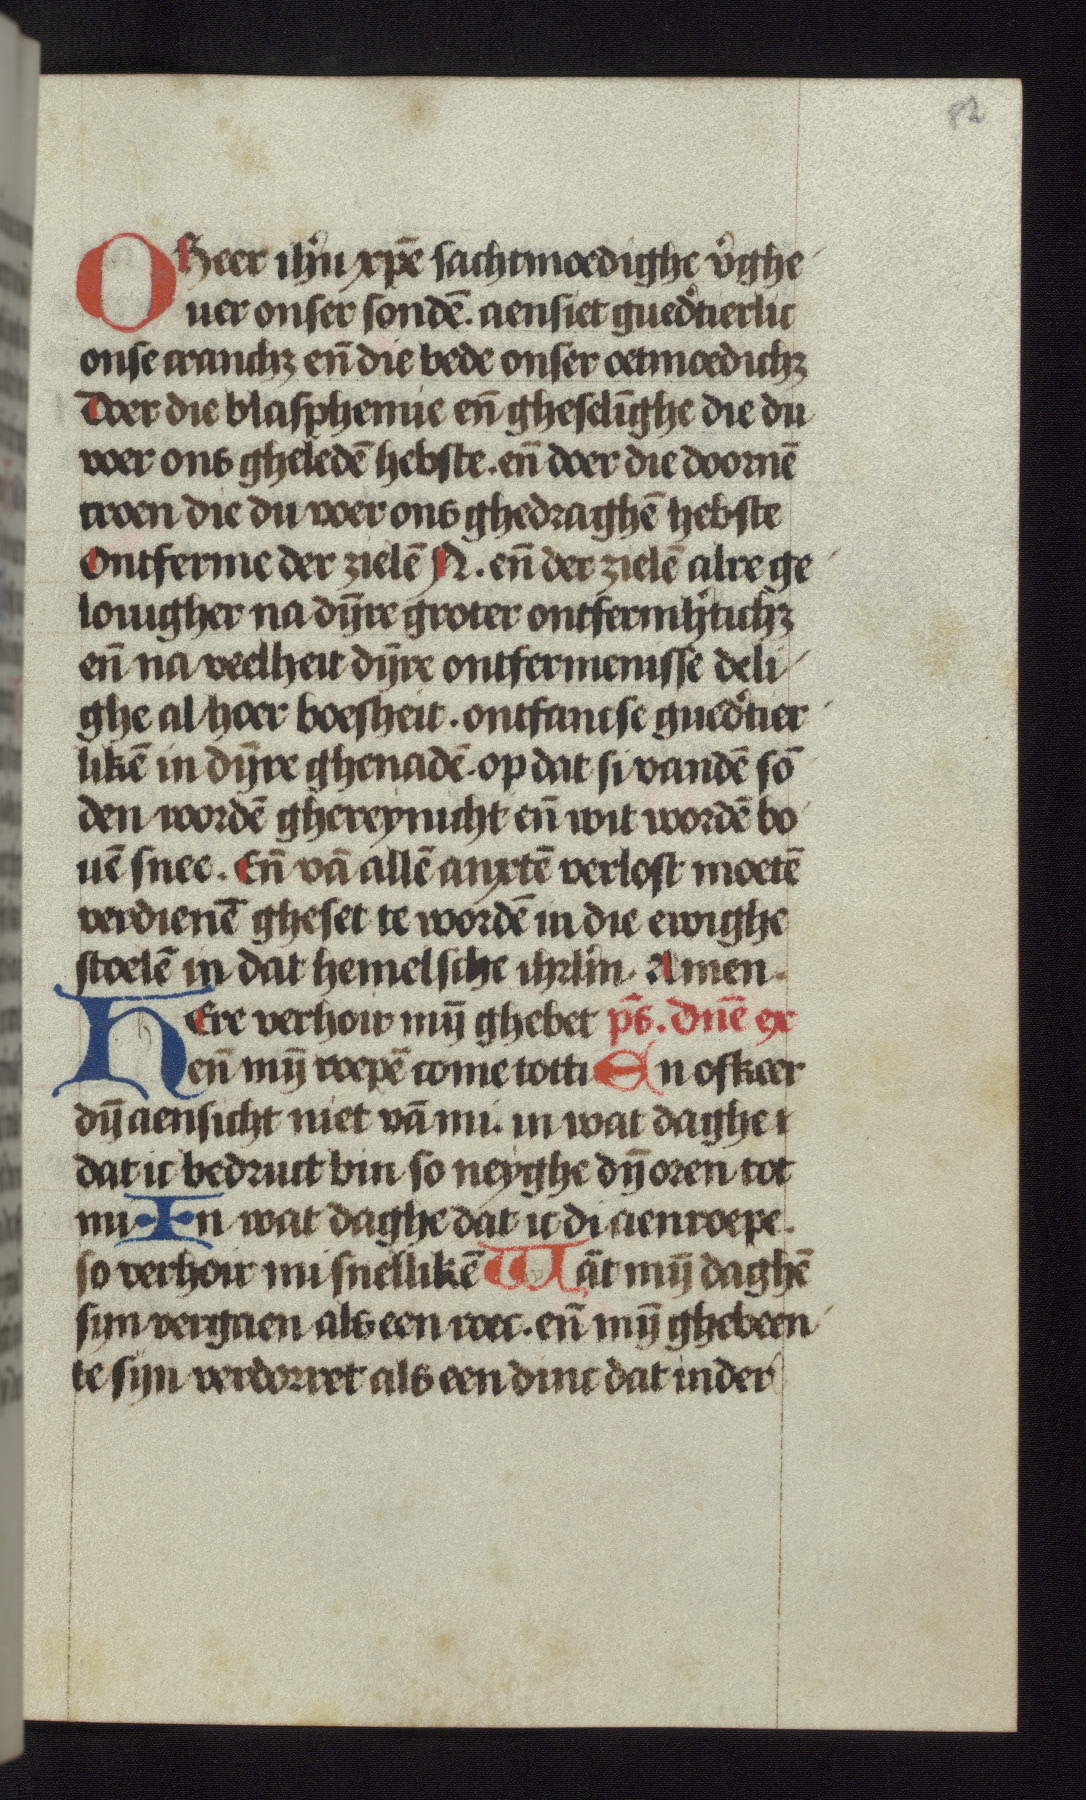 82
O Heer ihu xpē sachtmoedighe v̄ghe
uer onser sondē. aensiet guedt̄ierlic
onse cranchz en̄ die bede onser oetmoedichz
Doer die blasphemie en̄ gheselīghe die du
voer ons gheledē hebste. en̄ doer die doornē
croen die du voer ons ghedraghē hebste
Ontferme der zielē N. en̄ der zielē alre ge
louigher na dȳre groter ontfermh̄tichz
en̄ na veelheit dȳre ontfermenisse deli
ghe al hoer boesheit. ontfancse guedt̄ier
likē in dȳre ghenadē. op dat si vandē sō
den wordē ghereynicht en̄ wit wordē bo
uē snee. En̄ vā allē anxtē verlost moetē
verdienē gheset te wordē in die ewighe
stoelē in dat hemelsche ihrlm̄. Amen.
HEre verhoir mȳ ghebet ps̄. Dnē ex
en̄ mȳ roepē come totti En ofkeer
dȳ aensicht niet vā mi. in wat daghe
dat ic bedruct bin so neyghe dȳ oren tot
mi. In wat daghe dat ic di aenroepe.
so verhoir mi snellikē Wāt mȳ daghē
syn vergaen als een roec. en̄ mȳ ghebeen
te syn verdorret als een dinc dat inder